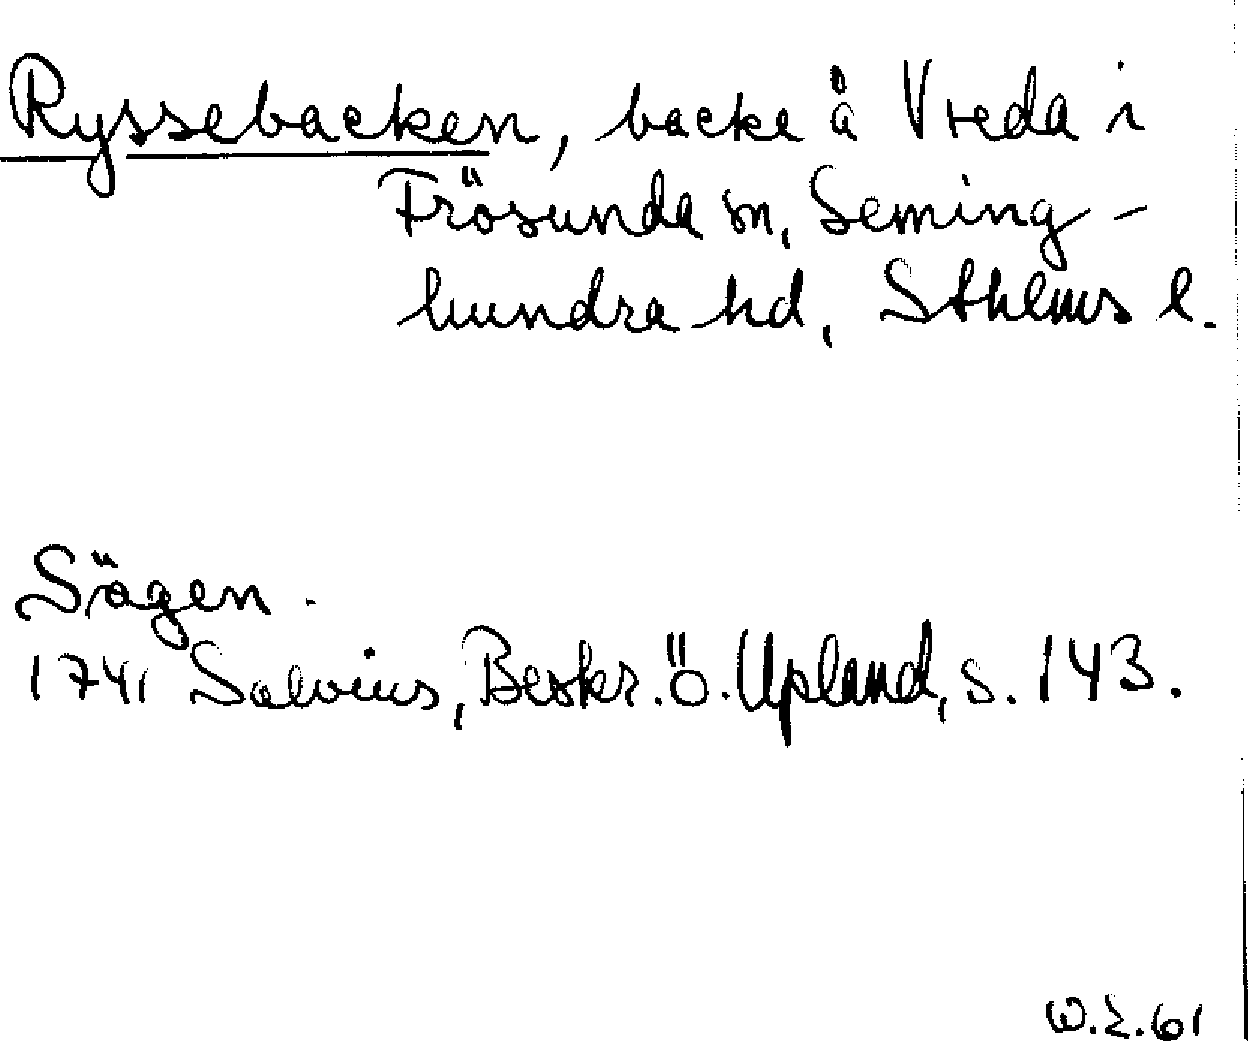 Ryssebacken, backe å Vreda i
Frösunda sn, Seming-
hundra hd, Sthlms l.
Sägen.
1741 Salvius, Beskr. ö. Upland, s. 143.
W.E.61